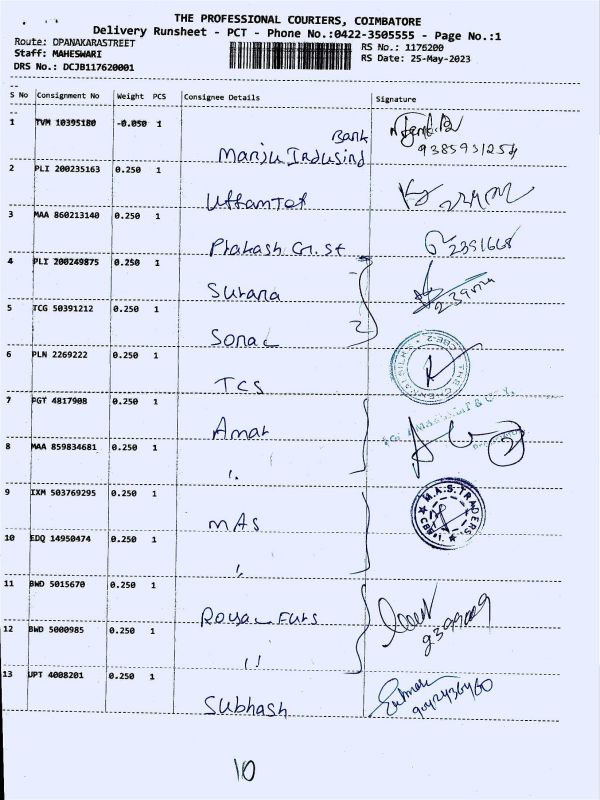 THE PROFESSIONAL COURIERS, COIMBATORE
Delivery Runsheet - PCT - Phone No.:0422-3505555 - Page No.:1
Route: OPANAKARASTREET
RS No.: 1176200
Staff: MAHESWARI
RS Date: 25-May-2023
DRS No.: DCJB117620001
S No Consignment No Weight PCS Consignee Details Signature
1 TVM 10395180 -0.050 1
Bank
Manju Indusind
9385931254
2 PLI 200235163 0.250 1
3 MAA 860213140 0.250 1
Prakash Gn. st
2391668
4 PLI 200249875 0.250 1
Surana
5 TCG 50391212 0.250 1
2
Sona
6 PLN 2269222 0.250 1
TCS
THE CHENNAI SILKS * CBE-2 *
7 PGT 4817908 0.250 1
Amar
8 MAA 859834681 0.250 1
9 IXM 503769295 0.250 1
MAS
M.A.S. TRADERS
CBE-1.
10 EDQ 14950474 0.250 1
11 BWD 5015670 0.250 1
Royal Furs
12 BWD 5000985 0.250 1
13 UPT 4008201 0.250 1
Subhash
10